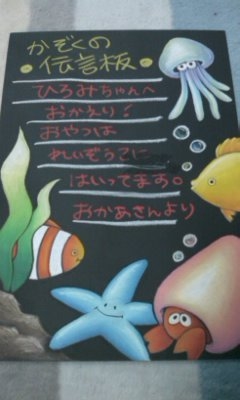 かぞくの
伝言板
ひろみちゃんへ
おかえり!
おやつは
れいぞうこに
はいってます。
おかあさんより